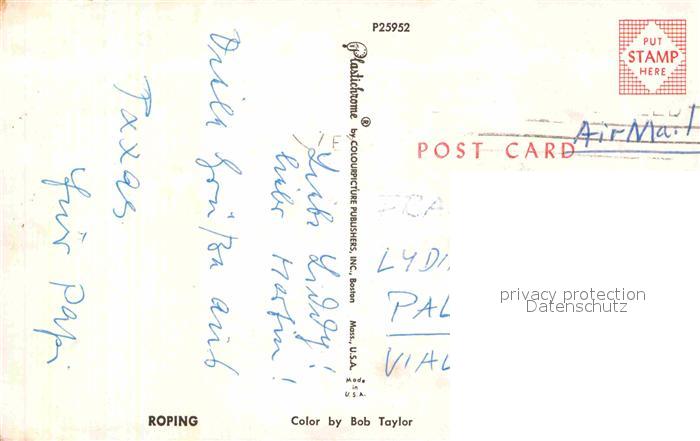 P25952
PUT
STAMP
HERE
Air Mail
POST CARD
Plastichrome ® by COLOURPICTURE PUBLISHERS, INC., Boston Mass., U.S.A.
Made
in
U.S.A.
Liebe Liddy!
lieber Martin!
Viele Grüße aus
Texas.
Euer Papi
LYDI
PAL
VIAL
privacy protection
Datenschutz
ROPING
Color by Bob Taylor